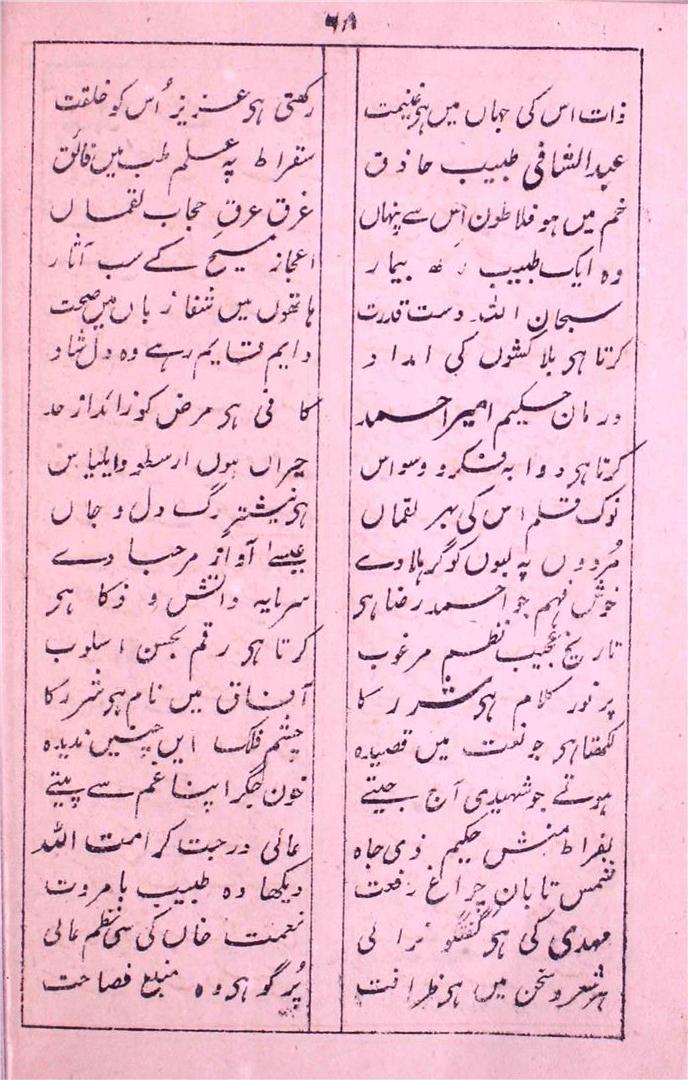 ۶۸
ذات اس کی جہاں میں ہی غنیمت رکھتی ہی عزیز اُس کو خلقت
عبدالشافی طبیب حاذق سقراط پہ علم طب میں فائق
خم میں ہو فلاطون اس سے پنہاں غرق عرق حجاب لقماں
وہ ایک طبیب بیمار اعجاز مسیح کے سب آثار
سبحان اللہ دست قدرت ہاتھوں میں شفا زباں میں صحت
کرتا ہی بلا کشوں کی امداد دایم قایم رہے وہ دل شاد
درمان حکیم امیر احمد کافی ہی مرض کو زائد از حد
کرتا ہی دوا بہ فکر و وسواس حیراں ہوں ارسطو و ایلیاس
نوک قلم اس کی بہر لقماں ہی نیشتر رگ دل و جاں
مُردوں پہ لبوں کو گر ہلا دے عیسےٰ آواز مرحبا دے
خوش فہم جو احمد رضا ہی سرمایہ دانش و ذکا ہی
تاریخ عجیب نظم مرغوب کرتا ہی رقم بحسن اسلوب
پر نور کلام ہی شرر کا آفاق میں نام ہی شرر کا
لکھتا ہی جو نعت میں قصیدہ چشم فلک ایں چنیں ندیدہ
ہوتے جو شہیدی آج جیتے خون جگر اپنا غم سے پیتے
بقراط منش حکیم ذی جاہ عالی درجت کرامت اللہ
شمس تابان چراغ رفعت دیکھا وہ طبیب بامروت
مہدی کی ہی گفتگو نرالی نعمت خاں کی سی نظم عالی
ہر شعر و سخن میں ہی ظرافت پُرگو ہی وہ منبع فصاحت